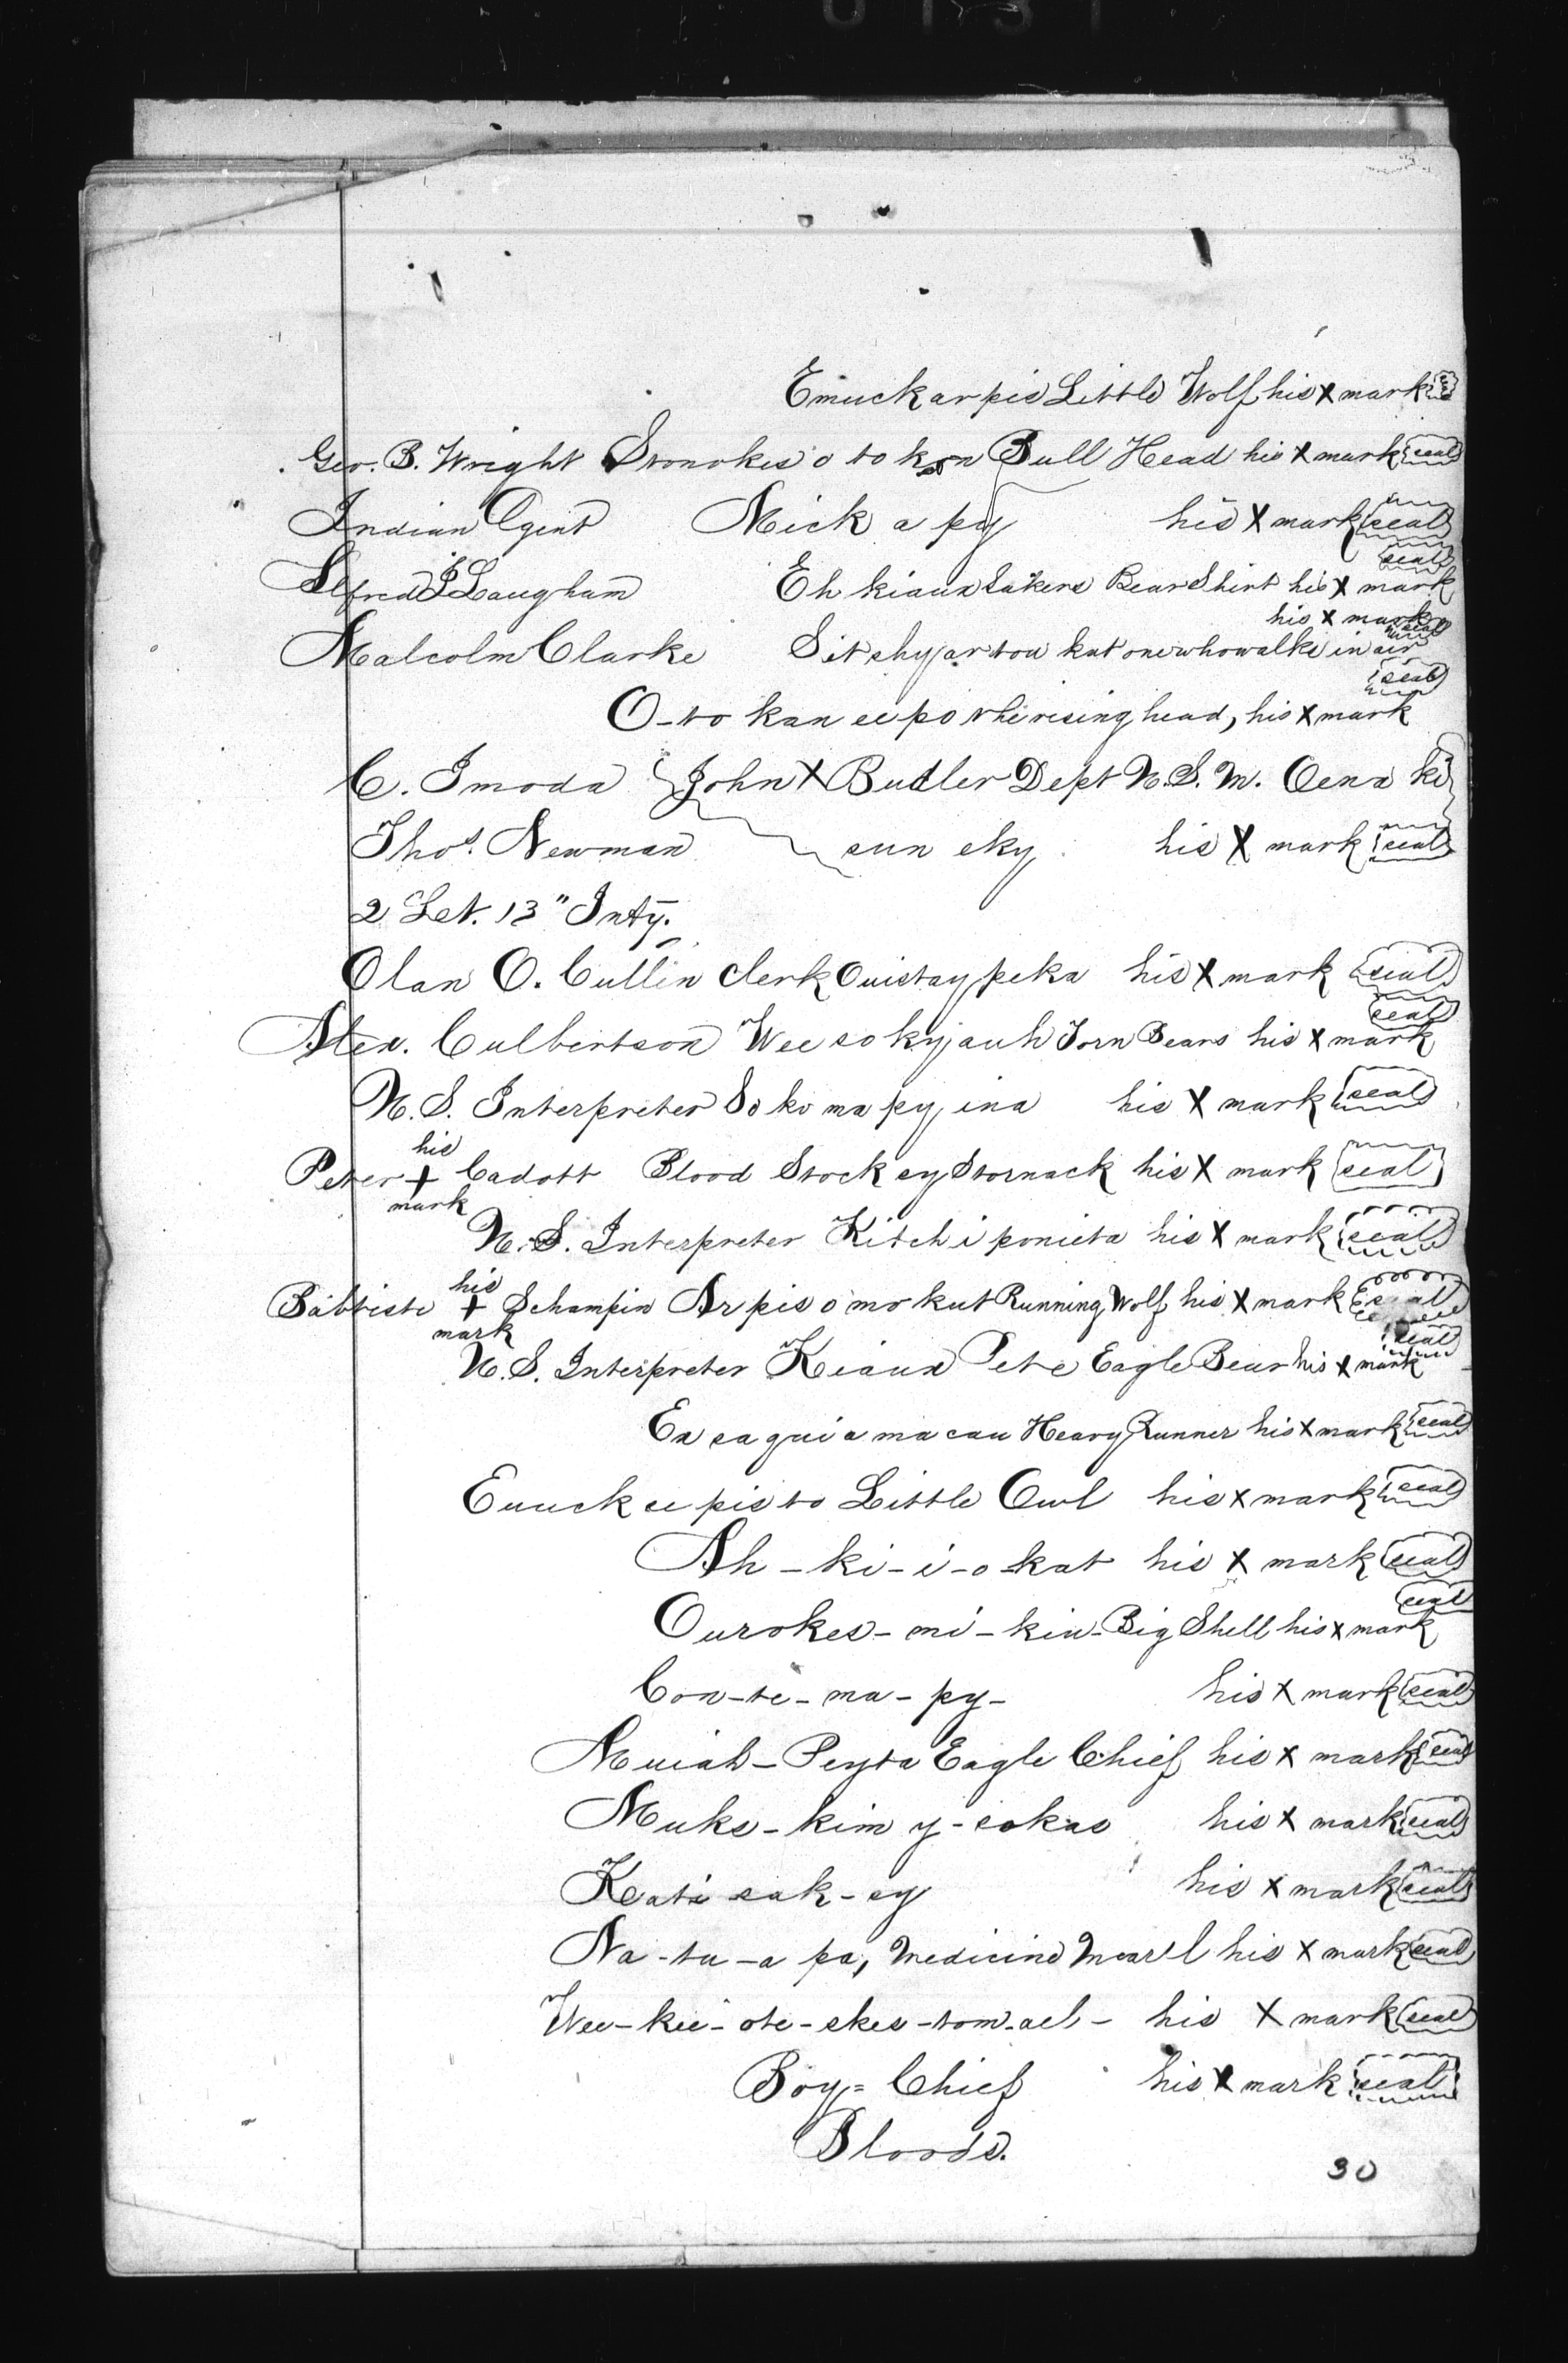 Emuck ar pis Little Wolf his X mark seal
Geo. B. Wright Stonokes o to kon Bull Head his X mark seal
Indian Agent Mick a py his X mark seal
seal
Alfred J Laugham Eh kiaux sakens Bear Shirt his X mark
his X mark seal
Malcolm Clarke Sit shy ar tou kat one who walks in air
seal
O-to kan ee po the rising head, his X mark
C. Imoda John X Butler Dept U.S. M. Oena ki
Thos. Newman sun eky his X mark seal
2 Let. 13" Inty.
Olan O. Cullin Clerk Ouistay peka his X mark seal
seal
Alex. Culbertson Wee so ky auh Torn Bears his X mark
U.S. Interpreter So ko ma py ina his X mark seal
his
Peter + Cadott Blood Stock ey Stornack his X mark seal
mark
U.S. Interpreter Kitch i ponista his X mark seal
his
Babtiste + Schampin Ar pis o mo kut Running Wolf his X mark seal
mark seal
U.S. Interpreter Kiaux Pete Eagle Bear his X mark
Ea sa qui a ma cau Heavy Runner his X mark seal
Emuck ee pis to Little Owl his X mark seal
Ah-ki-i-o-kat his X mark seal
seal
Ourokes-mi-kin-Big Shell his X mark
Con-te-ma-py- his X mark seal
Muiah-Peyta Eagle Chief his X mark seal
Muks-kim y-sokas his X mark seal
Kati sak-ey his X mark seal
Na-tu-a pa, Medicine Mearl his X mark seal
Wee-kee-ote-skes-tom-ael- his X mark seal
Boy=Chief his X mark seal
Bloods.
30